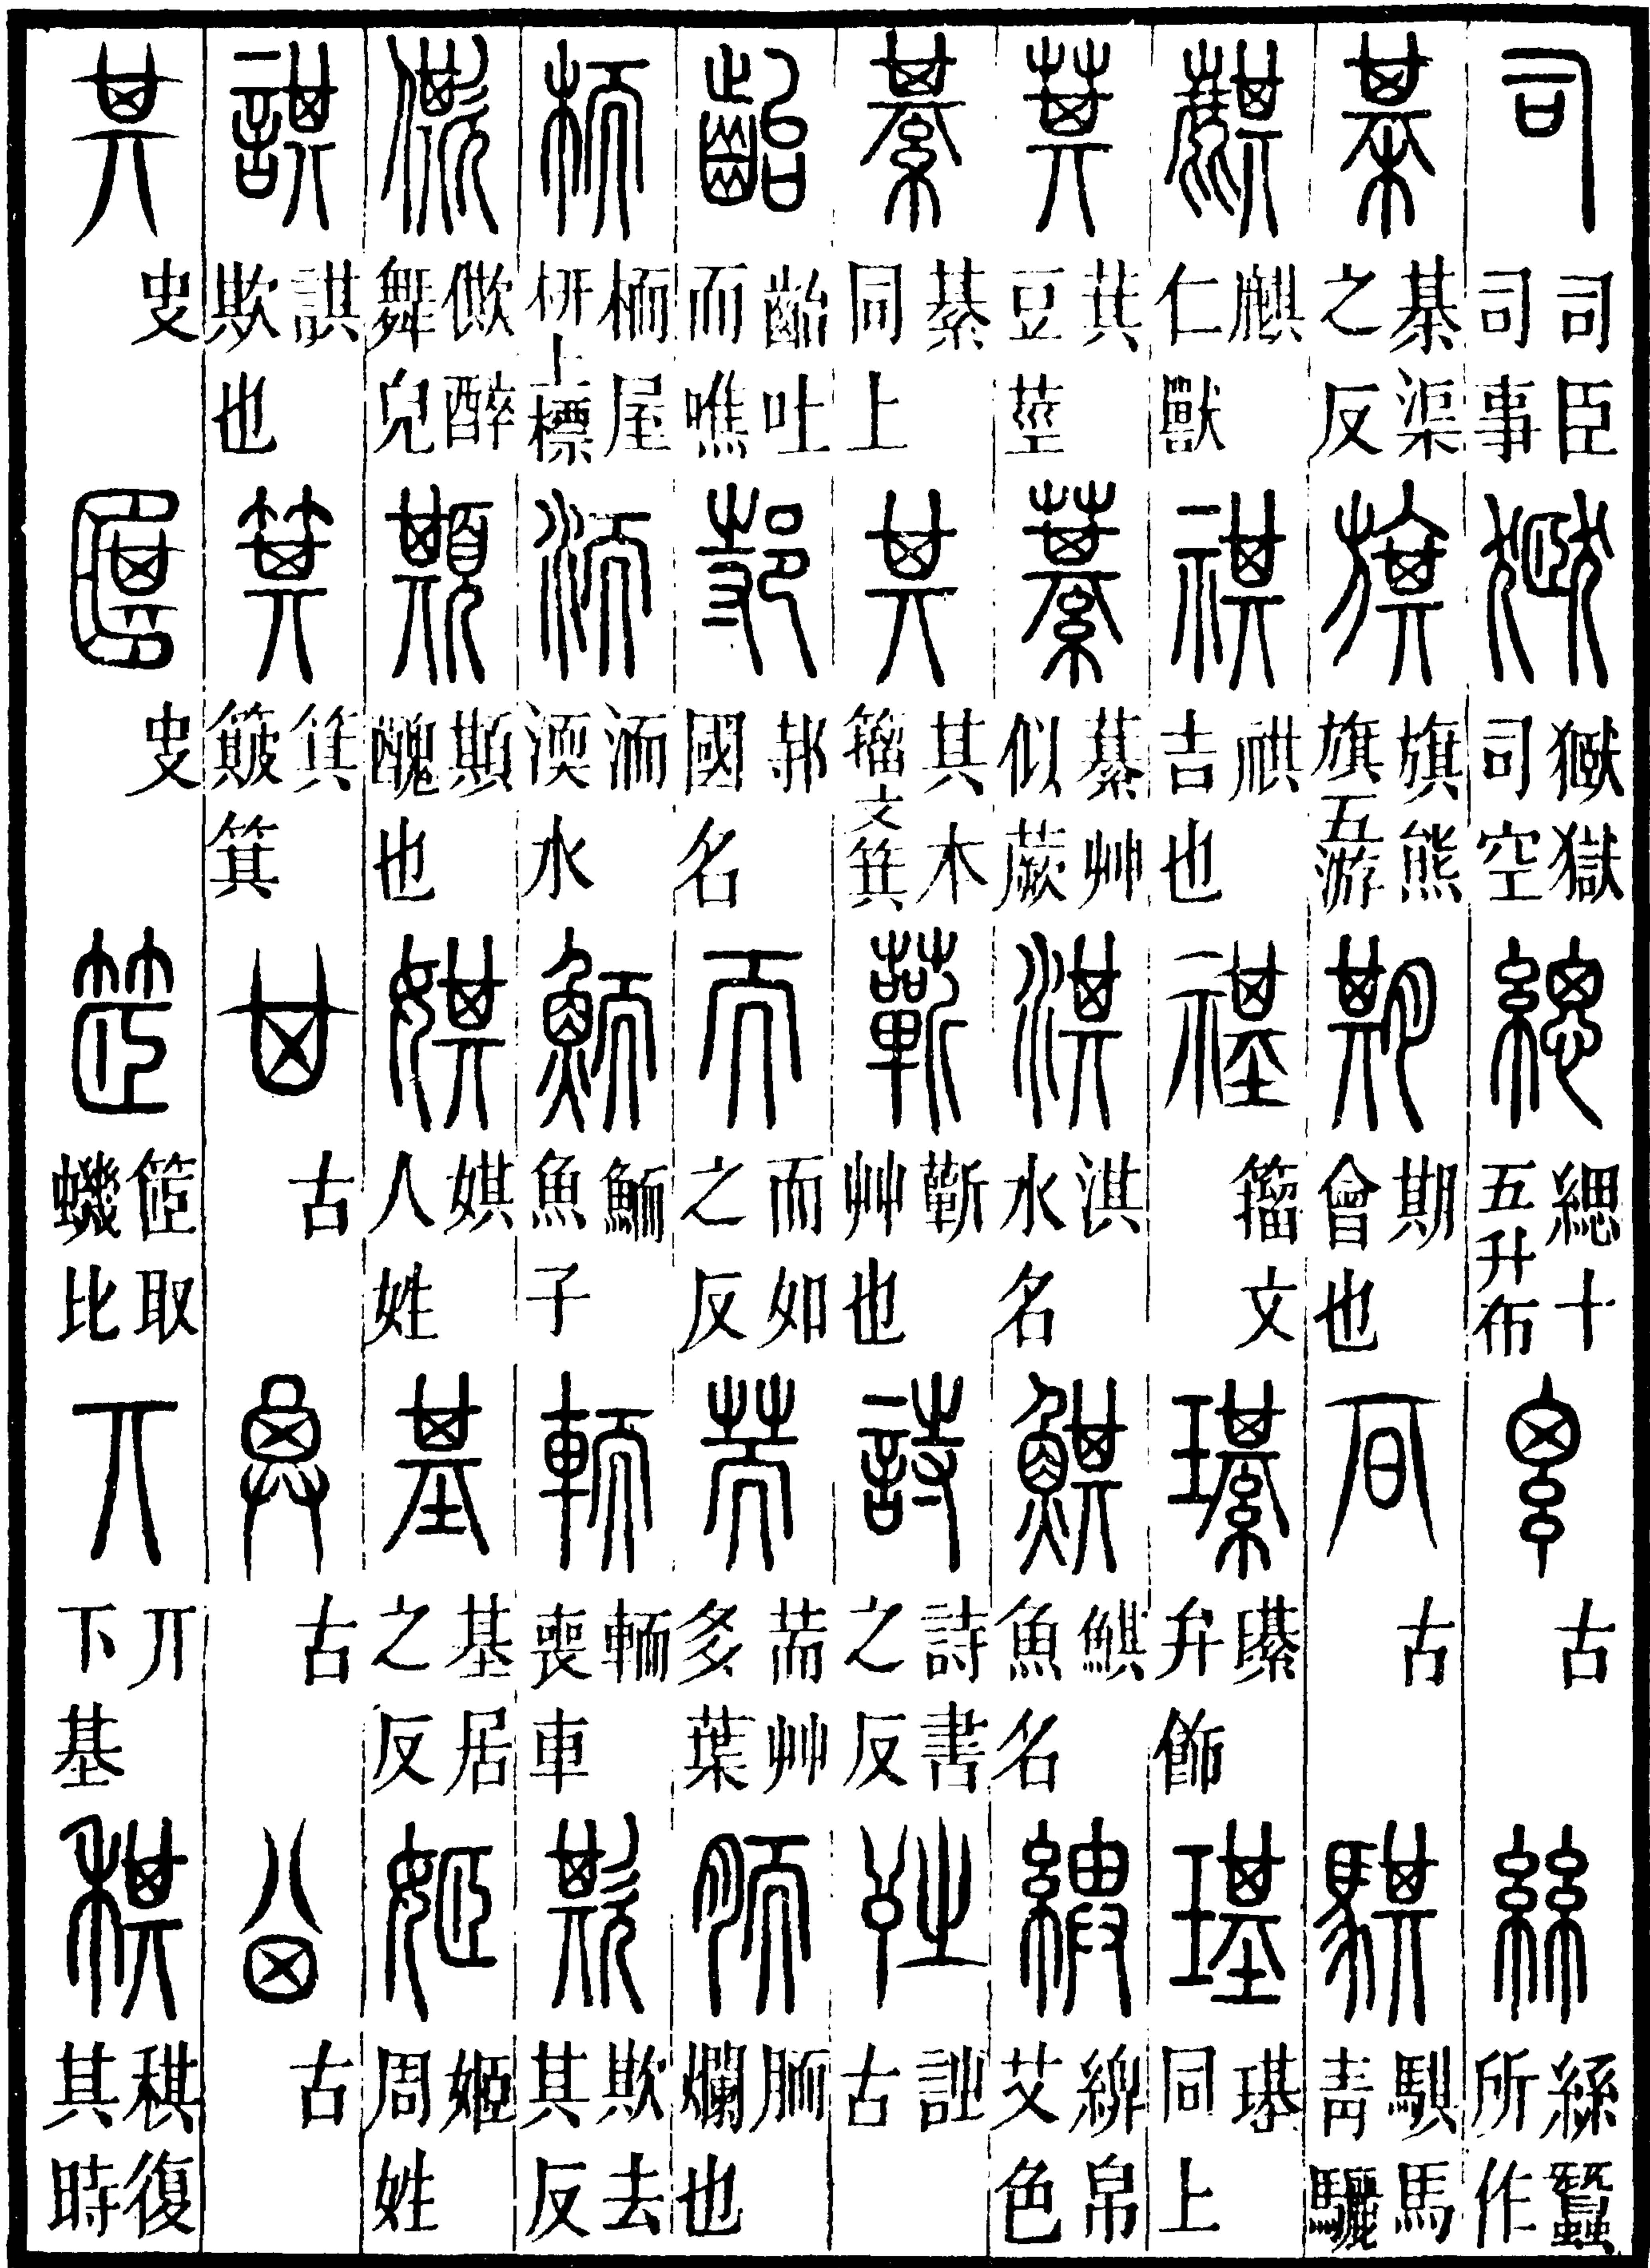 司 司臣司事 㺇 㺇獄司空 緦 緦十五升布 古 絲 絲蠶所作
棊 棊渠之反 旗 旗熊旗五游 期 期會也 古 騏 騏馬青驪
麒 麒仁獸 祺 祺吉也 籀文 璂弁飾 璂 璂同上
萁 萁豆莖 藄 藄艸似蕨 淇 淇水名 鯕 鯕魚名 綥帛艾色
綦 綦同上 其 其木籀文箕 蘄 蘄艸也 詩 詩書之反 訨古
齝 齝吐而噍 邿 邿國名 而 而如之反 荋 荋艸多葉 胹 胹爛也
栭 栭屋枅上標 洏 洏渜水 鮞 鮞魚子 輀 輀喪車 欺 欺去其反
僛 僛醉舞皃 䫏 䫏醜也 娸 娸人姓 基 基居之反 姬 姬周姓
諆 諆欺也 箕 箕簸箕 古 古 古
其 叓 叓 䇫 䇫取蟣比 丌 丌下基 稘 稘復其時